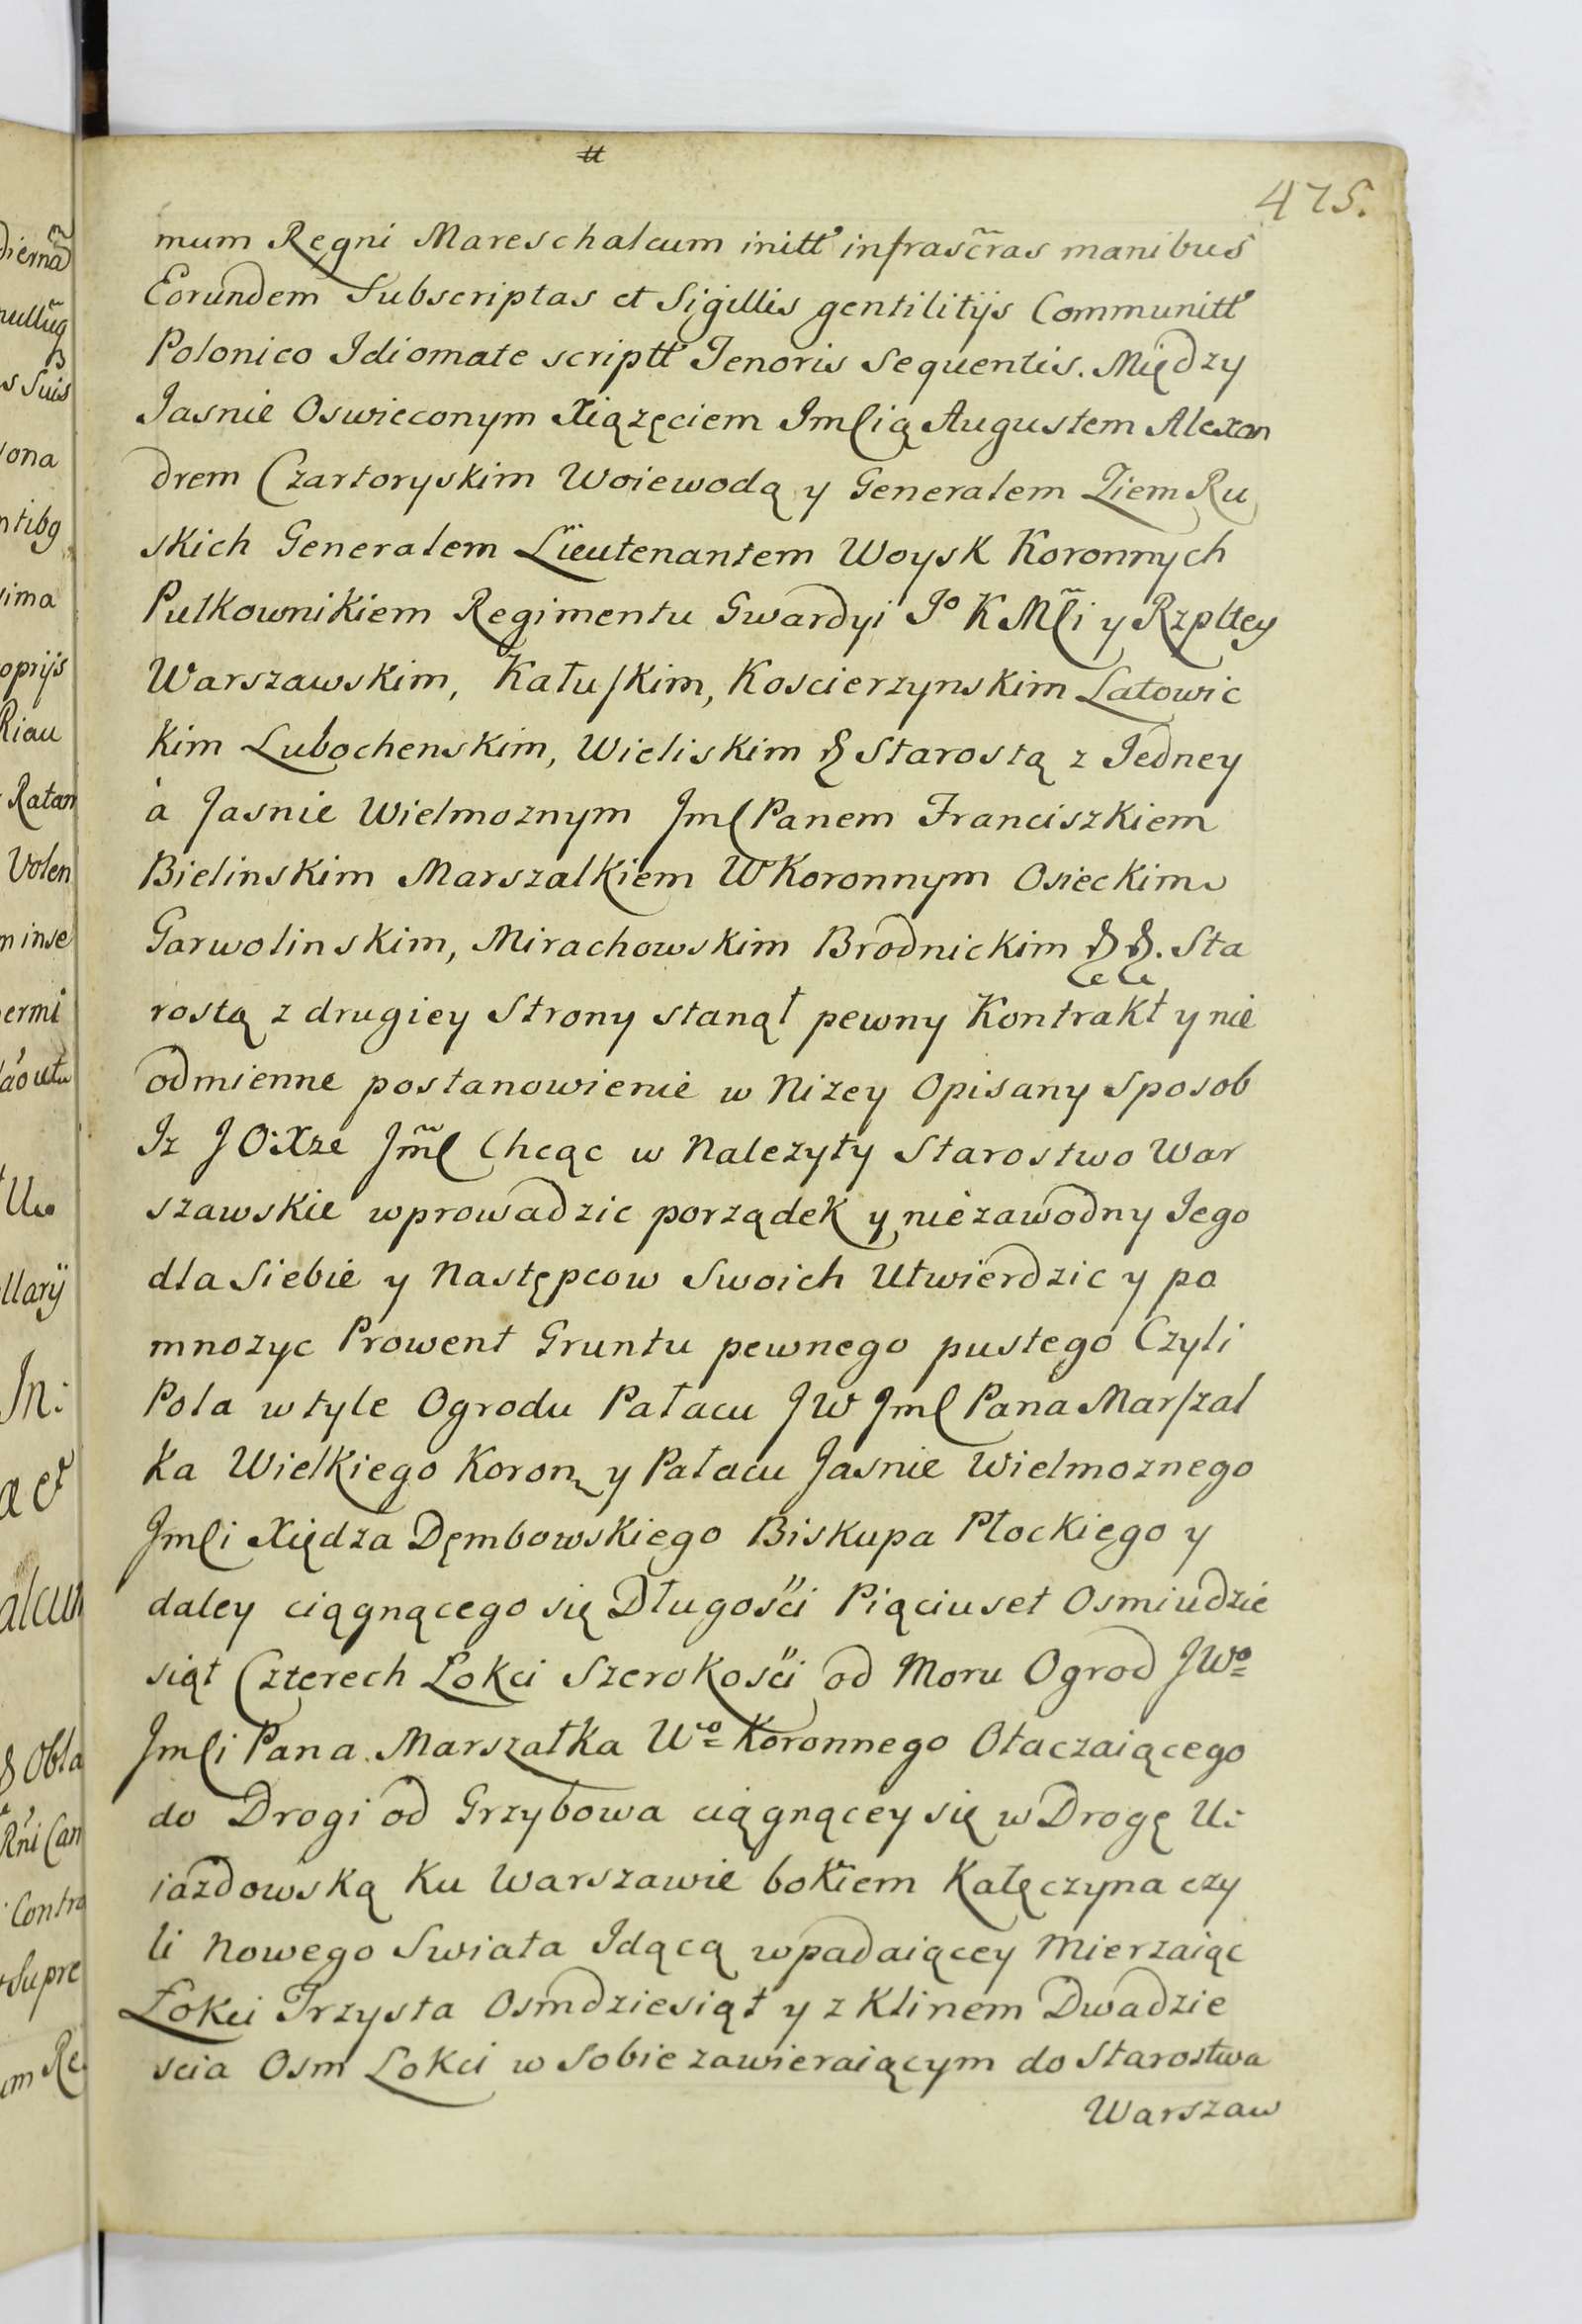 475.
mum Regni Mareschalcum initt infrascr̃as manibus
Eorundem Subscriptas et Sigillis gentilitijs Communitt
Polonico Idiomate scriptt Tenoris Sequentis. Między
Jasnie Oswieconym Xiązęciem Jmſcią Augustem Alexan
drem Czartoryskim Woiewodą y Generalem Ziem Ru
skich Generalem Lieutenantem Woysk Koronnych
Pułkownikiem Regimentu Gwardyi Jº K Mſci y Rzpltey
Warszawskim, Kałuſkim, Koscierzynskim Latowic
kim Lubochenskim, Wieliskim & Starostą z Jedney
à Jasnie Wielmoznym Jmſ Panem Franciszkiem
Bielinskim Marszalkiem W Koronnym Osieckim
Garwolinskim, Mirachowskim Brodnickim &&. Sta
rostą z drugiey Strony stanął pewny Kontrakt y nie
odmienne postanowienie w Nizey Opisany Sposob
Iz J O: Xze Jm̃ſ Chcąc w Nalezyty Starostwo War
szawskie wprowadzic porządek y niezawodny Jego
dla Siebie y Następcow Swoich Utwierdzic y po
mnozyc Prowent Gruntu pewnego pustego Czyli
Pola w tyle Ogrodu Pałacu JW Jmſ Pana Marſzał
ka Wielkiego Koron y Pałacu Jasnie Wielmoznego
Jmſci Xiędza Dęmbowskiego Biskupa Płockiego y
daley ciągnącego się Długości Piąciuset Osmiudzie
siąt Czterech Łokci Szerokości od Moru Ogrod JWº
Jmſci Pana Marszałka Wº Koronnego Otaczaiącego
do Drogi od Grzybowa ciągnącey się w Drogę U:
iazdowską ku Warszawie bokiem Kałęczyna czy
li Nowego Swiata Idącą wpadaiącey Mierzaiąc
Łokci Trzysta Osmdziesiąt y z Klinem Dwadzie
scia Osm Łokci w Sobie zawieraiącym do Starostwa
Warszaw